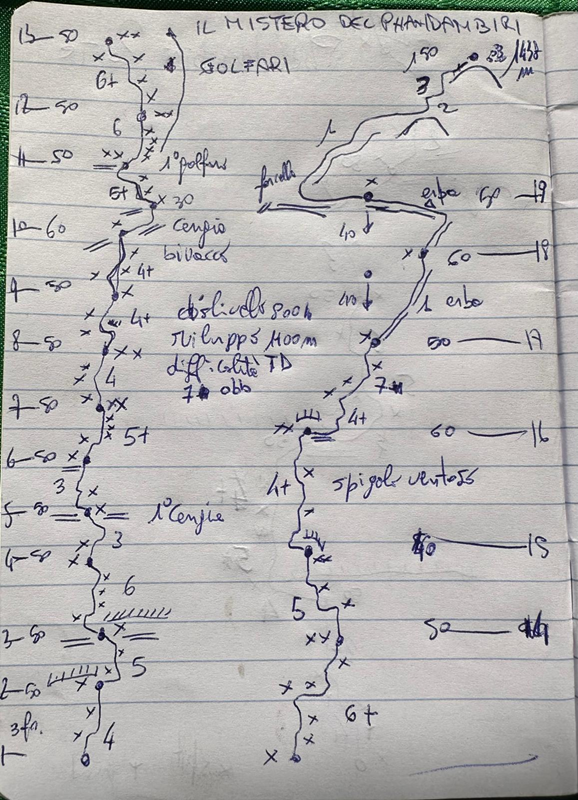 IL MISTERO DEL PHANDAMBIRI
GOLFARI
13-50
6+
12-50
6
11-50
5+
30
10-60
cengia
bivacco
4+
9-50
4+
dislivello 800m
sviluppo 1100m
difficoltà TD
7 obb
8-50
4
7-50
5+
6-50
3
5-50
1° Cengia
3
4-50
6
3-50
5
2-50
4
1-
150
1438
m
3
2
1
forcella
erba 60-19
40
60-18
40
1 erba
50-17
7
4+
60-16
4+
spigolo ventoso
-15
5
50-14
6+